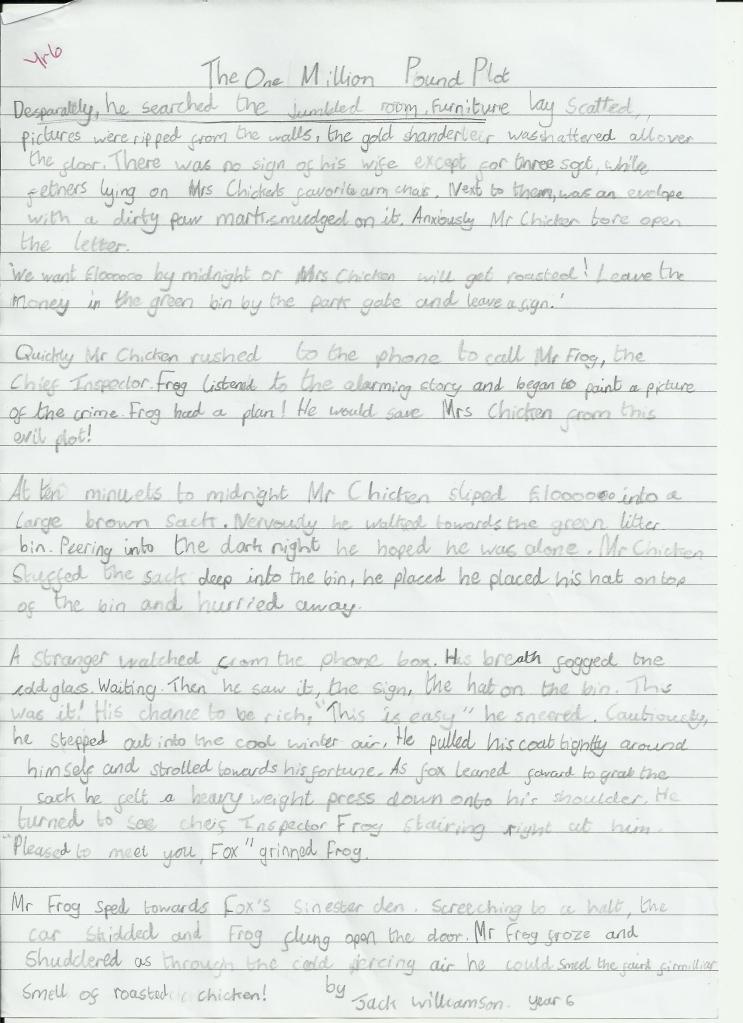 Yr6
The One Million Pound Plot
Desparately, he searched the jumbled room. Furniture lay scatted,
pictures were ripped from the walls, the gold shanderleir was shattered all over
the floor. There was no sign of his wife except for three soft, white
fethers lying on Mrs Chickens favorite arm chair. Next to them, was an evelope
with a dirty paw mark smudged on it. Anxiously Mr Chicken tore open
the letter.
'We want £1000000 by midnight or Mrs Chicken will get roasted! Leave the
money in the green bin by the park gate and leave a sign.'
Quickly Mr Chicken rushed to the phone to call Mr Frog, the
Chief Inspector. Frog listened to the alarming story and began to paint a picture
of the crime. Frog had a plan! He would save Mrs Chicken from this
evil plot!
At ten minuets to midnight Mr Chicken sliped £1000000 into a
large brown sack. Nervously he walked towards the green litter
bin. Peering into the dark night he hoped he was alone. Mr Chicken
stuffed the sack deep into the bin, he placed he placed his hat on top
of the bin and hurried away.
A stranger watched from the phone box. His breath fogged the
cold glass. Waiting. Then he saw it, the sign, the hat on the bin. This
was it! His chance to be rich, "This is easy" he sneered. Cautiously,
he stepped out into the cool winter air. He pulled his coat tightly around
himself and strolled towards his fortune. As fox leaned foward to grab the
sack he felt a heavy weight press down onto his shoulder. He
turned to see cheif Inspector Frog stairing right at him.
"Pleased to meet you, Fox" grinned Frog.
Mr Frog sped towards Fox's sinester den. Screeching to a halt, the
car skidded and Frog flung open the door. Mr Frog froze and
shuddered as through the cold piercing air he could smell the faint firmilliar
smell of roasted chicken!
by Jack Williamson. year 6